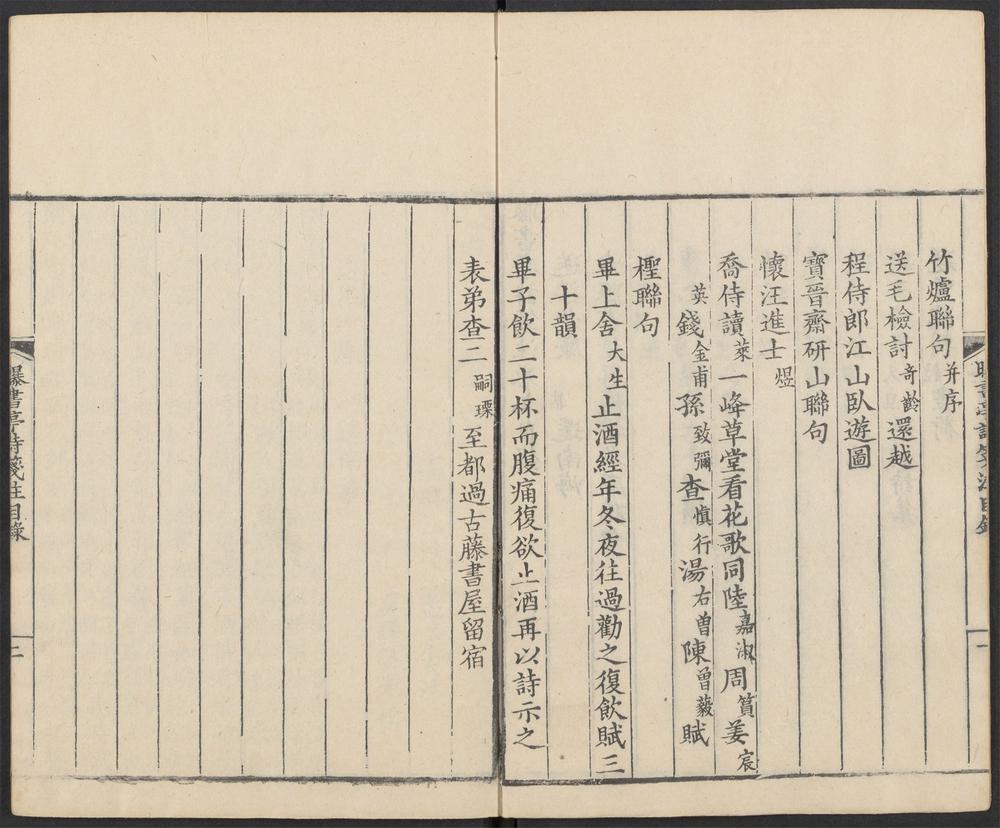 竹爐聯句并序
送毛檢討奇齡還越
程侍郎江山臥遊圖
寶晉齋研山聯句
懷汪進士煜
喬侍讀萊一峰草堂看花歌同陸嘉淑周篔姜宸
英錢金甫孫致彌查慎行湯右曾陳曾薿賦
檉聯句
畢上舍大生止酒經年冬夜往過勸之復飲賦三
十韻
畢子飲二十杯而腹痛復欲止酒再以詩示之
表弟查二嗣瑮至都過古藤書屋留宿
曝書亭詩箋注目錄